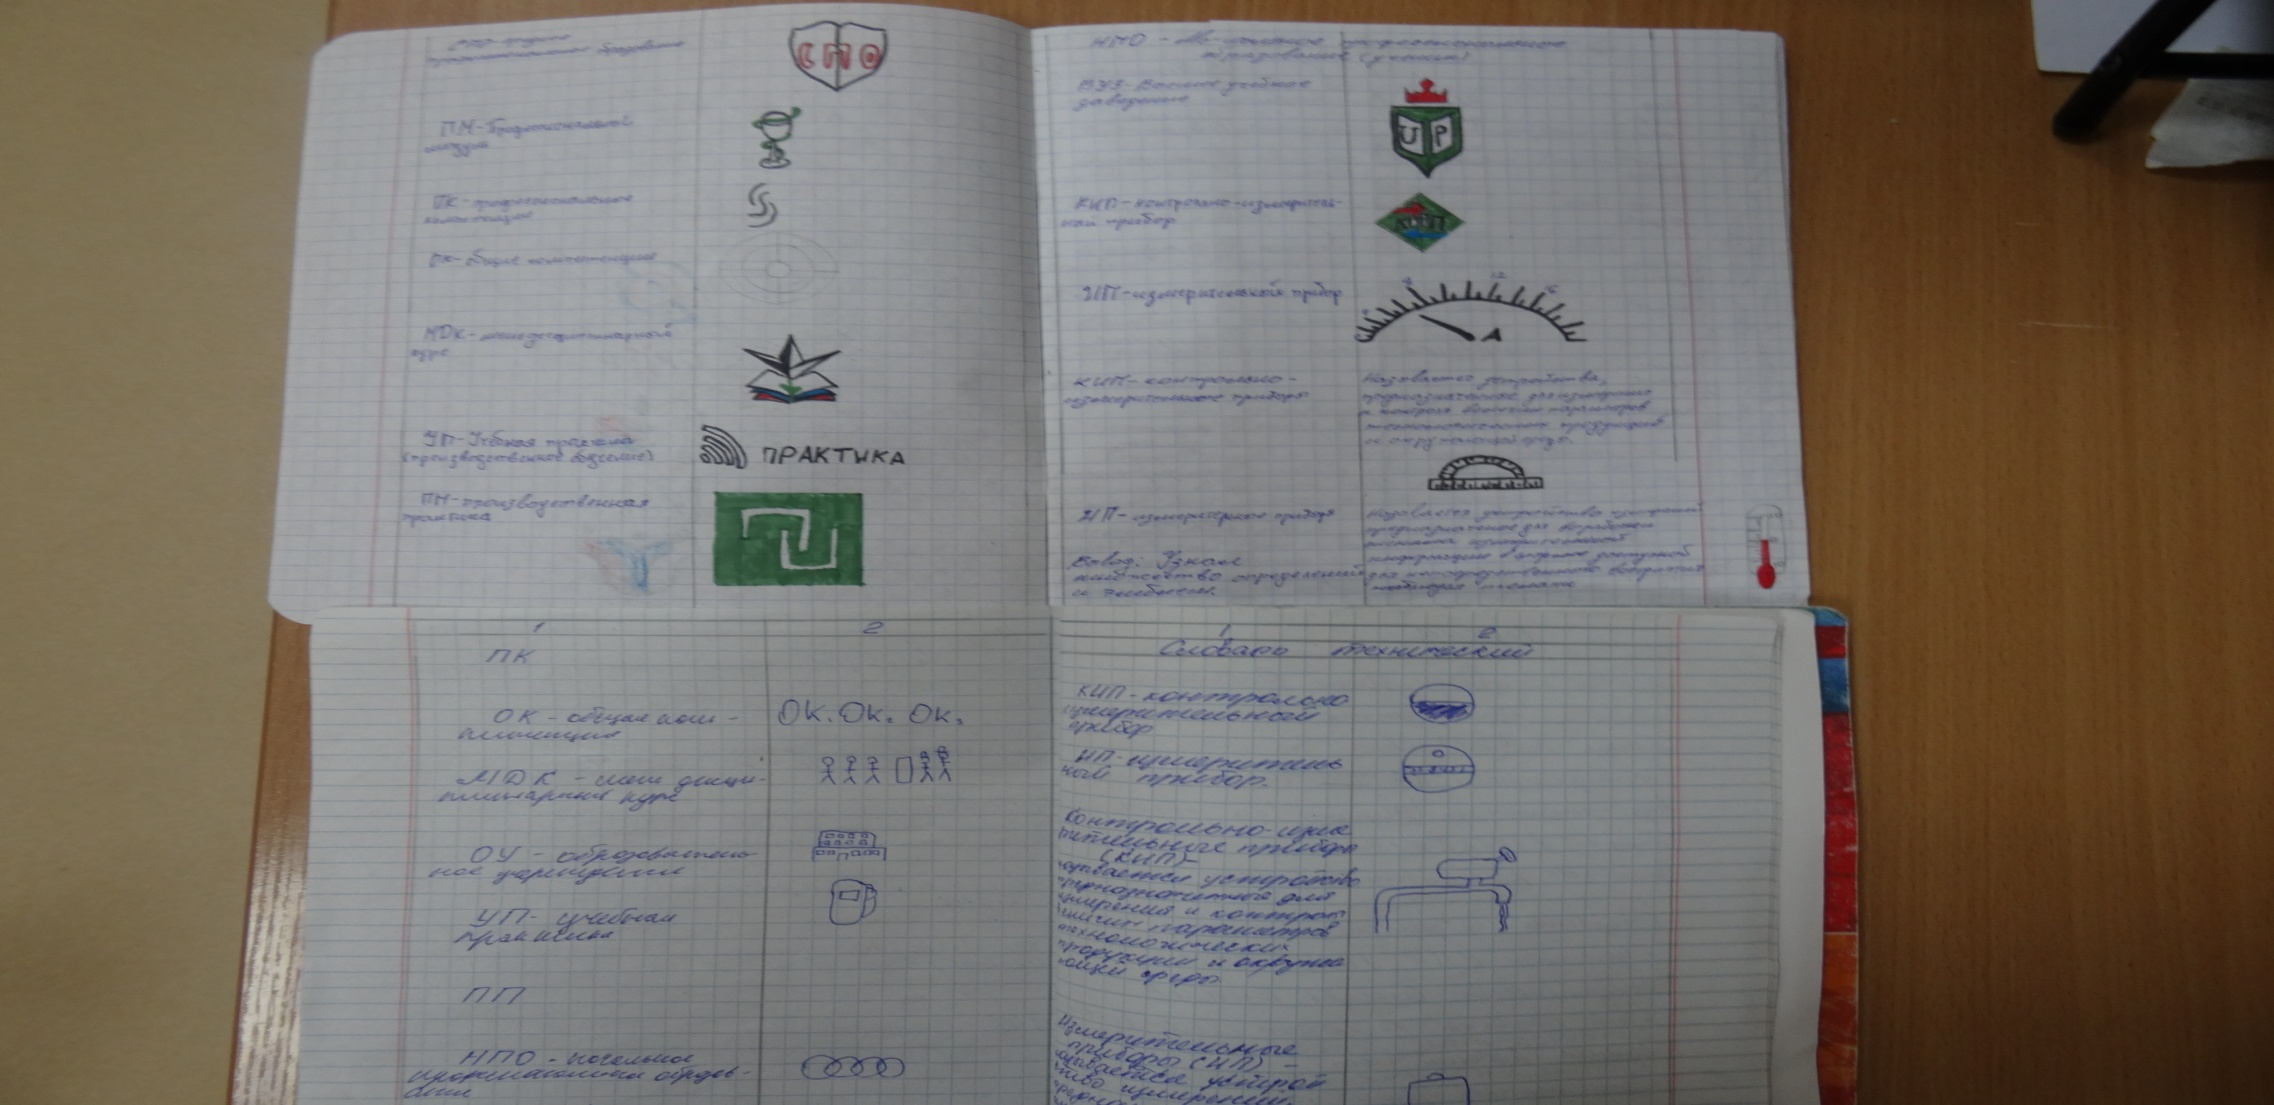 СПО - среднее
профессиональное образование
СПО
ПМ - Профессиональный
модуль
ПК - профессиональные
компетенции
ОК - общие компетенции
МДК - междисциплинарный
курс
УП - Учебная практика
(производственное обучение)
ПРАКТИКА
ПП - производственная
практика
НПО - профессиональное
образование
ВУЗ - Высшее учебное
заведение
UP
КИП - контрольно-измеритель-
ный прибор
КИП
ИП - измерительный прибор
А
КИП - контрольно-
измерительные приборы
Называется устройства,
предназначенные для измерения
и контроля величин параметров
технологических продукции
и окружающей среды.
ИП - приборы
Называется устройство измерений
предназначенное для выработки
сигнала измерительной
информации в форме доступной
для непосредственного восприятия
Вывод: Узнал
множество определений
и эмблемы.
1 2
ПК
ОК - общая ком-
питенция
ОК. ОК. ОК.
МДК - меж дисци-
плинарный курс
ОУ - образователь-
ное учреждение
УП - учебная
практика
ПП
НПО - начальное
образов-
1 2
Словарь технический
КИП - контрольно
измерительный
прибор
ИП - измеритель
ный прибор.
Контрольно-изме
рительные приборы
(КИП) -
называется устройство
предназначенной для
измерения и контроля
величин параметров
технологических
продукции и окружа
ющей среды.
Измерительные
приборы (ИП) -
называется устрой
ство измерений